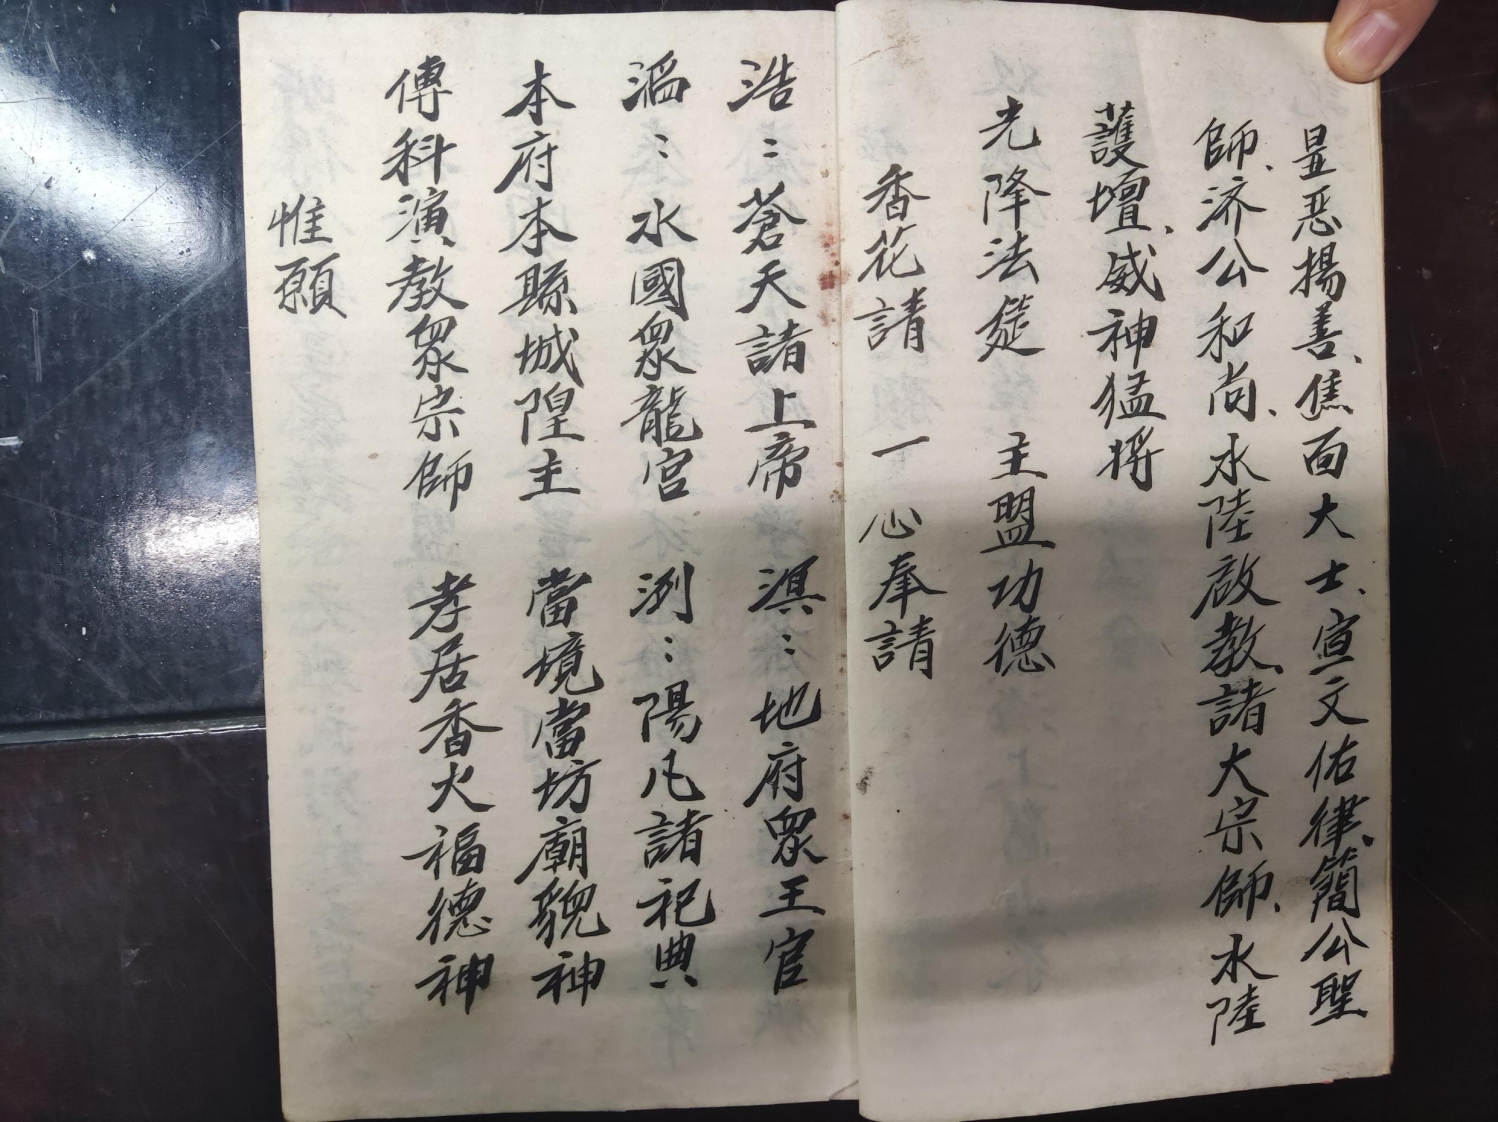 昙恶揚善、焦面大士、宣文佑律、簡公聖
師、济公和尚、水陸啟教、諸大宗師、水陸
護壇、威神猛将
光降法筵　主盟功德
香花請　一心奉請
浩：蒼天諸上帝　溟：地府眾王官
滔：水國眾龍宫　洌：陽凡諸祀典
本府本縣城隍主　當境當坊廟貌神
傳科演教眾宗師　孝居香火福德神
惟願